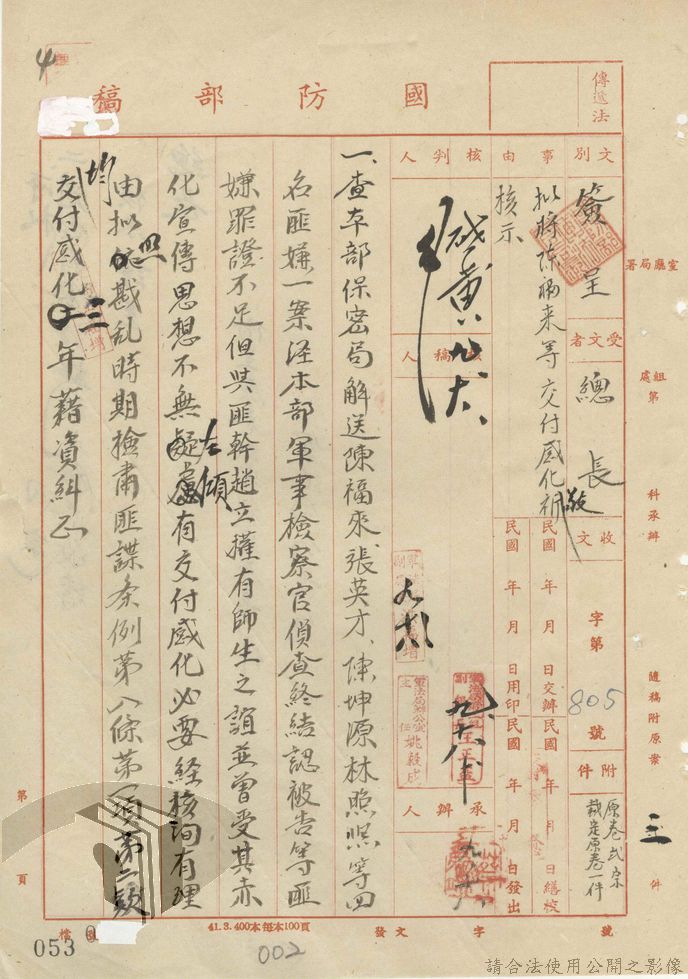 國防部稿
傳遞法
文別
簽呈
受文者
總長
收文
字第
805
號
附件
原卷弍宗
裁定原卷一件
事由
擬將陳福來等交付感化祈
敬
核示
民國 年 月 日交辦
民國 年 月 日繕校
民國 年 月 日用印
民國 年 月 日發出
核判人
核稿人
承辦人
一、查本部保密局解送陳福來、張英才、陳坤源林照熙等四
名匪嫌一案經本部軍事檢察官偵查終結認被告等匪
嫌罪證不足但與匪幹趙立擁有師生之誼並曾受其赤
化宣傳思想不無左傾有交付感化必要經核詢有理
由擬照戡亂時期檢肅匪諜条例第八條第一項第二款
均交付感化三年藉資糾正
室廳局署
組處第
科承辦
隨稿附原案
三
件
第 頁
檔
053
41.3.400本每本100頁
發文 字
002
請合法使用公開之影像